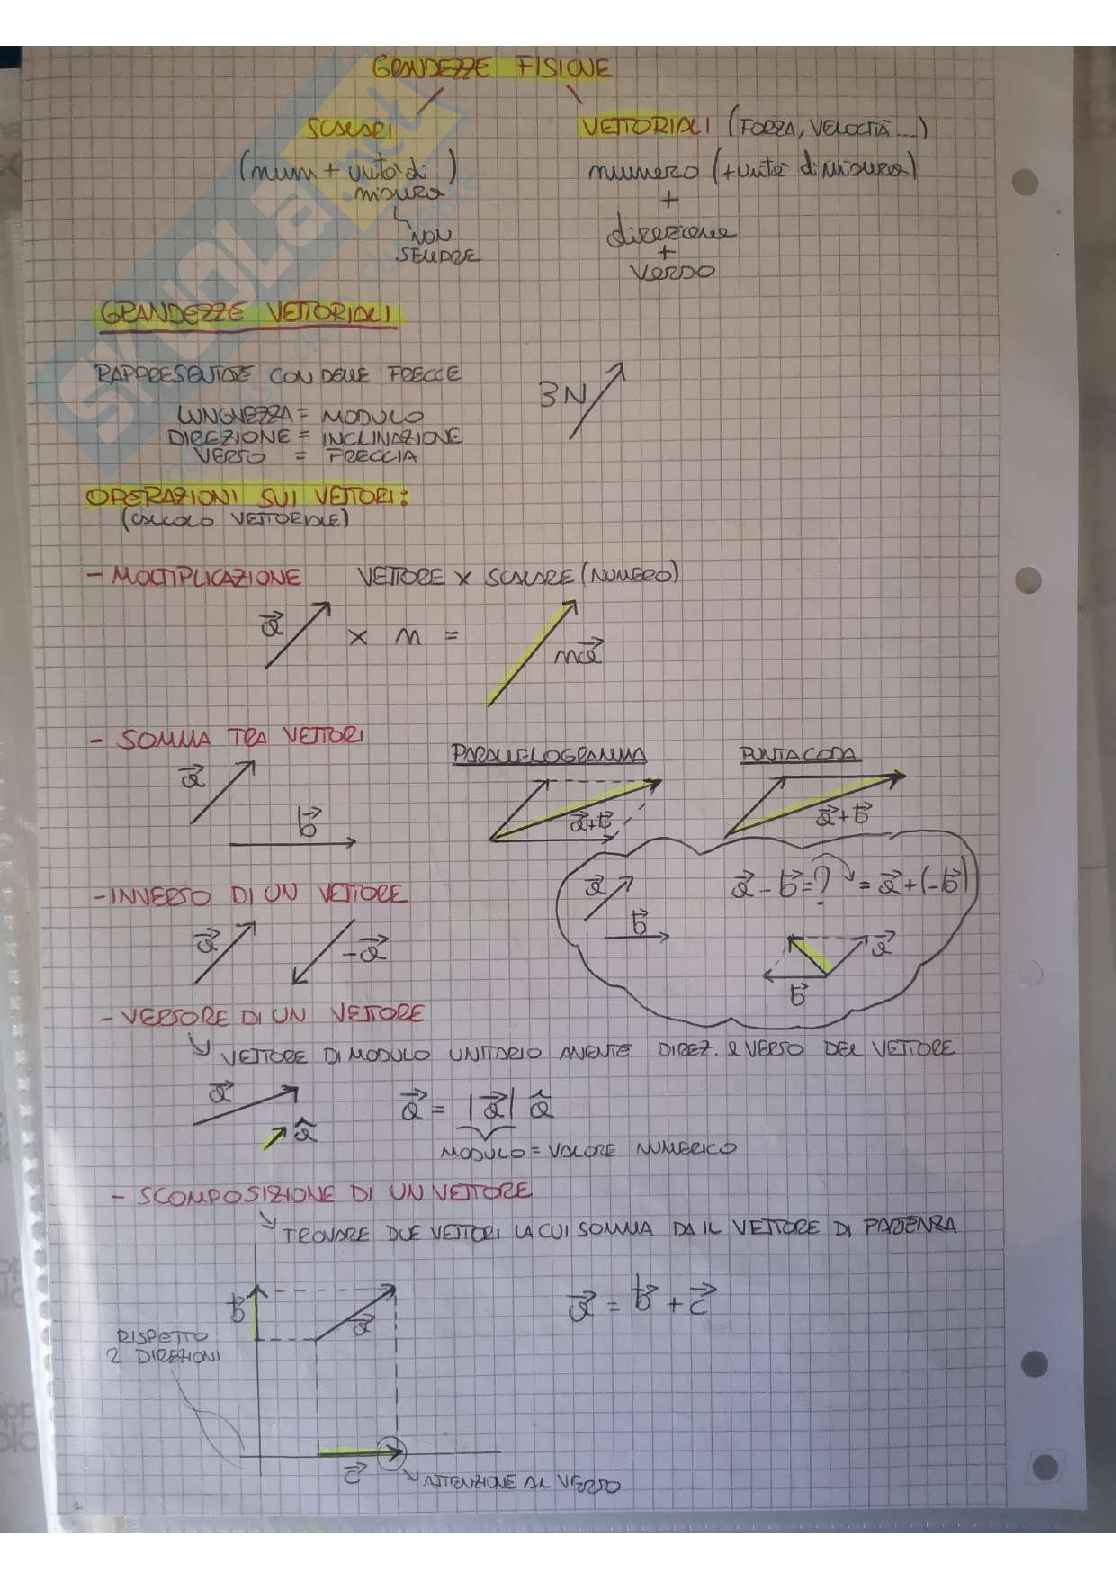 GRANDEZZE FISICHE
SCALARI
VETTORIALI (FORZA, VELOCITÀ ...)
(num + unità di misura)
numero (+ unità di misura)
NON SEMPRE
+
direzione
+
verso
GRANDEZZE VETTORIALI
RAPPRESENTATE CON DELLE FRECCE
3N
LUNGHEZZA = MODULO
DIREZIONE = INCLINAZIONE
VERSO = FRECCIA
OPERAZIONI SUI VETTORI:
(CALCOLO VETTORIALE)
- MOLTIPLICAZIONE VETTORE x SCALARE (NUMERO)
a⃗ x m = ma⃗
- SOMMA TRA VETTORI
PARALLELOGRAMMA
PUNTACODA
a⃗
b⃗
a⃗+b⃗
a⃗+b⃗
- INVERSO DI UN VETTORE
a⃗ -a⃗
a⃗ b⃗
a⃗ - b⃗ = ? = a⃗ + (-b⃗)
a⃗
b⃗
- VERSORE DI UN VETTORE
VETTORE DI MODULO UNITARIO AVENTE DIREZ. E VERSO DEL VETTORE
a⃗
â
a⃗ = |a⃗| â
MODULO = VALORE NUMERICO
- SCOMPOSIZIONE DI UN VETTORE
TROVARE DUE VETTORI LA CUI SOMMA DA IL VETTORE DI PARTENZA
b⃗
a⃗
a⃗ = b⃗ + c⃗
RISPETTO
2 DIREZIONI
c⃗
ATTENZIONE AL VERSO
SKUOLA.net